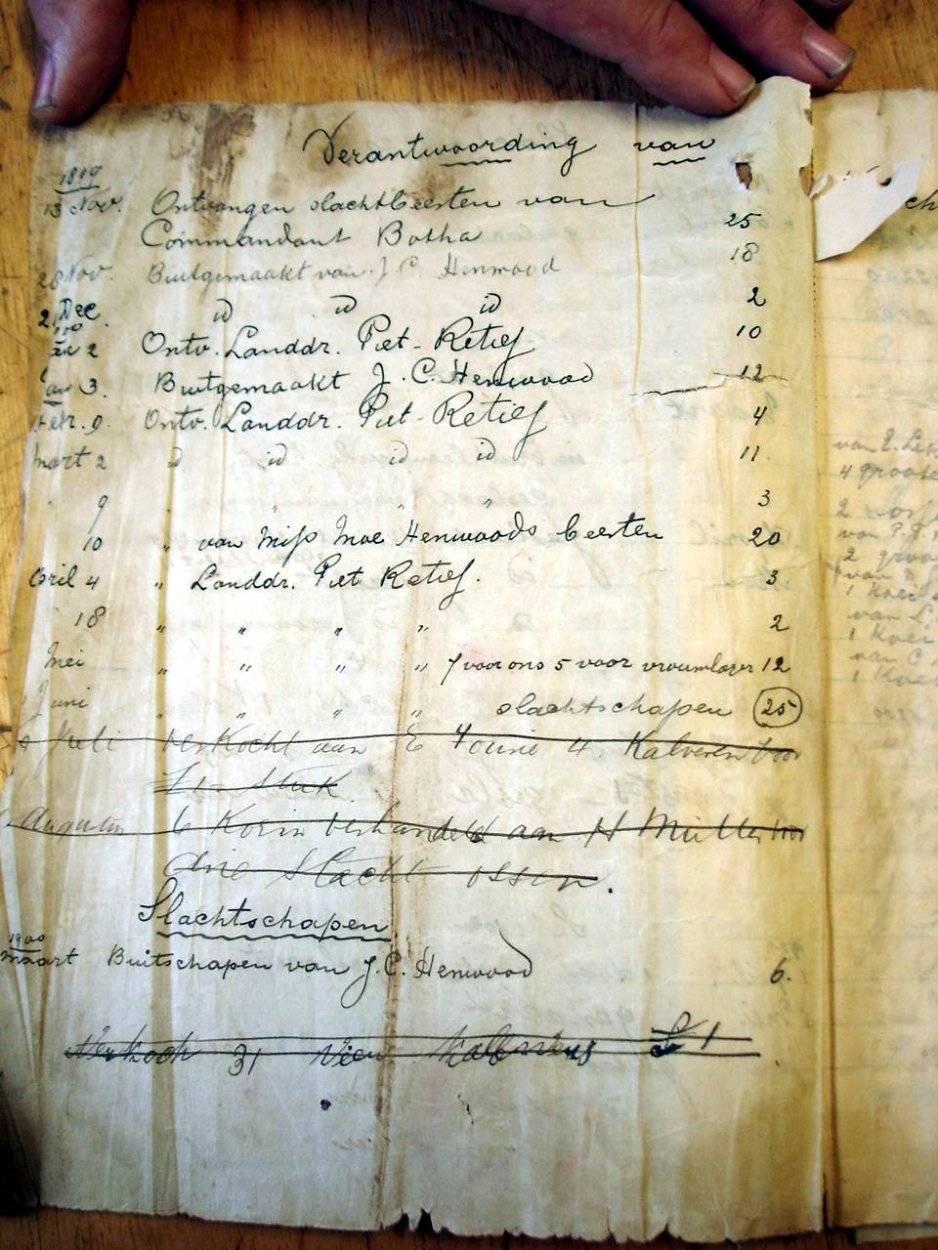 Verantwoording van
1899
13 Nov. Ontvangen slachtbeesten van
Commandant Botha 25
28 Nov. Buitgemaakt van J. C. Henwood 18
Dec id id id 2
2 Ontv. Landdr. Piet-Retief 10
3. Buitgemaakt J. C. Henwood 12
Febr. 9. Ontv. Landdr. Piet-Retief 4
Maart 2 id id id id 11
9 " " " 3
10 " van Miss Moe Henwoods beesten 20
April 4 " Landdr. Piet Retief. 3
18 " " " " 2
Mei " " " " 7 voor ons 5 voor vrouwlager 12
Juni " " " " slachtschapen 25
Juli verkocht aan E 4 Kalveren voor
£1 - Stuk
Augustus 6 Koein verhandeld aan H Muller voor
drie Slacht ossen.
Slachtschapen
1900
Maart Buitschapen van J. C. Henwood 6.
Verkoch 31 £1
van
4 groote
2
van
2
van
1 Koei
van
1 Koei
van C
1 Koei